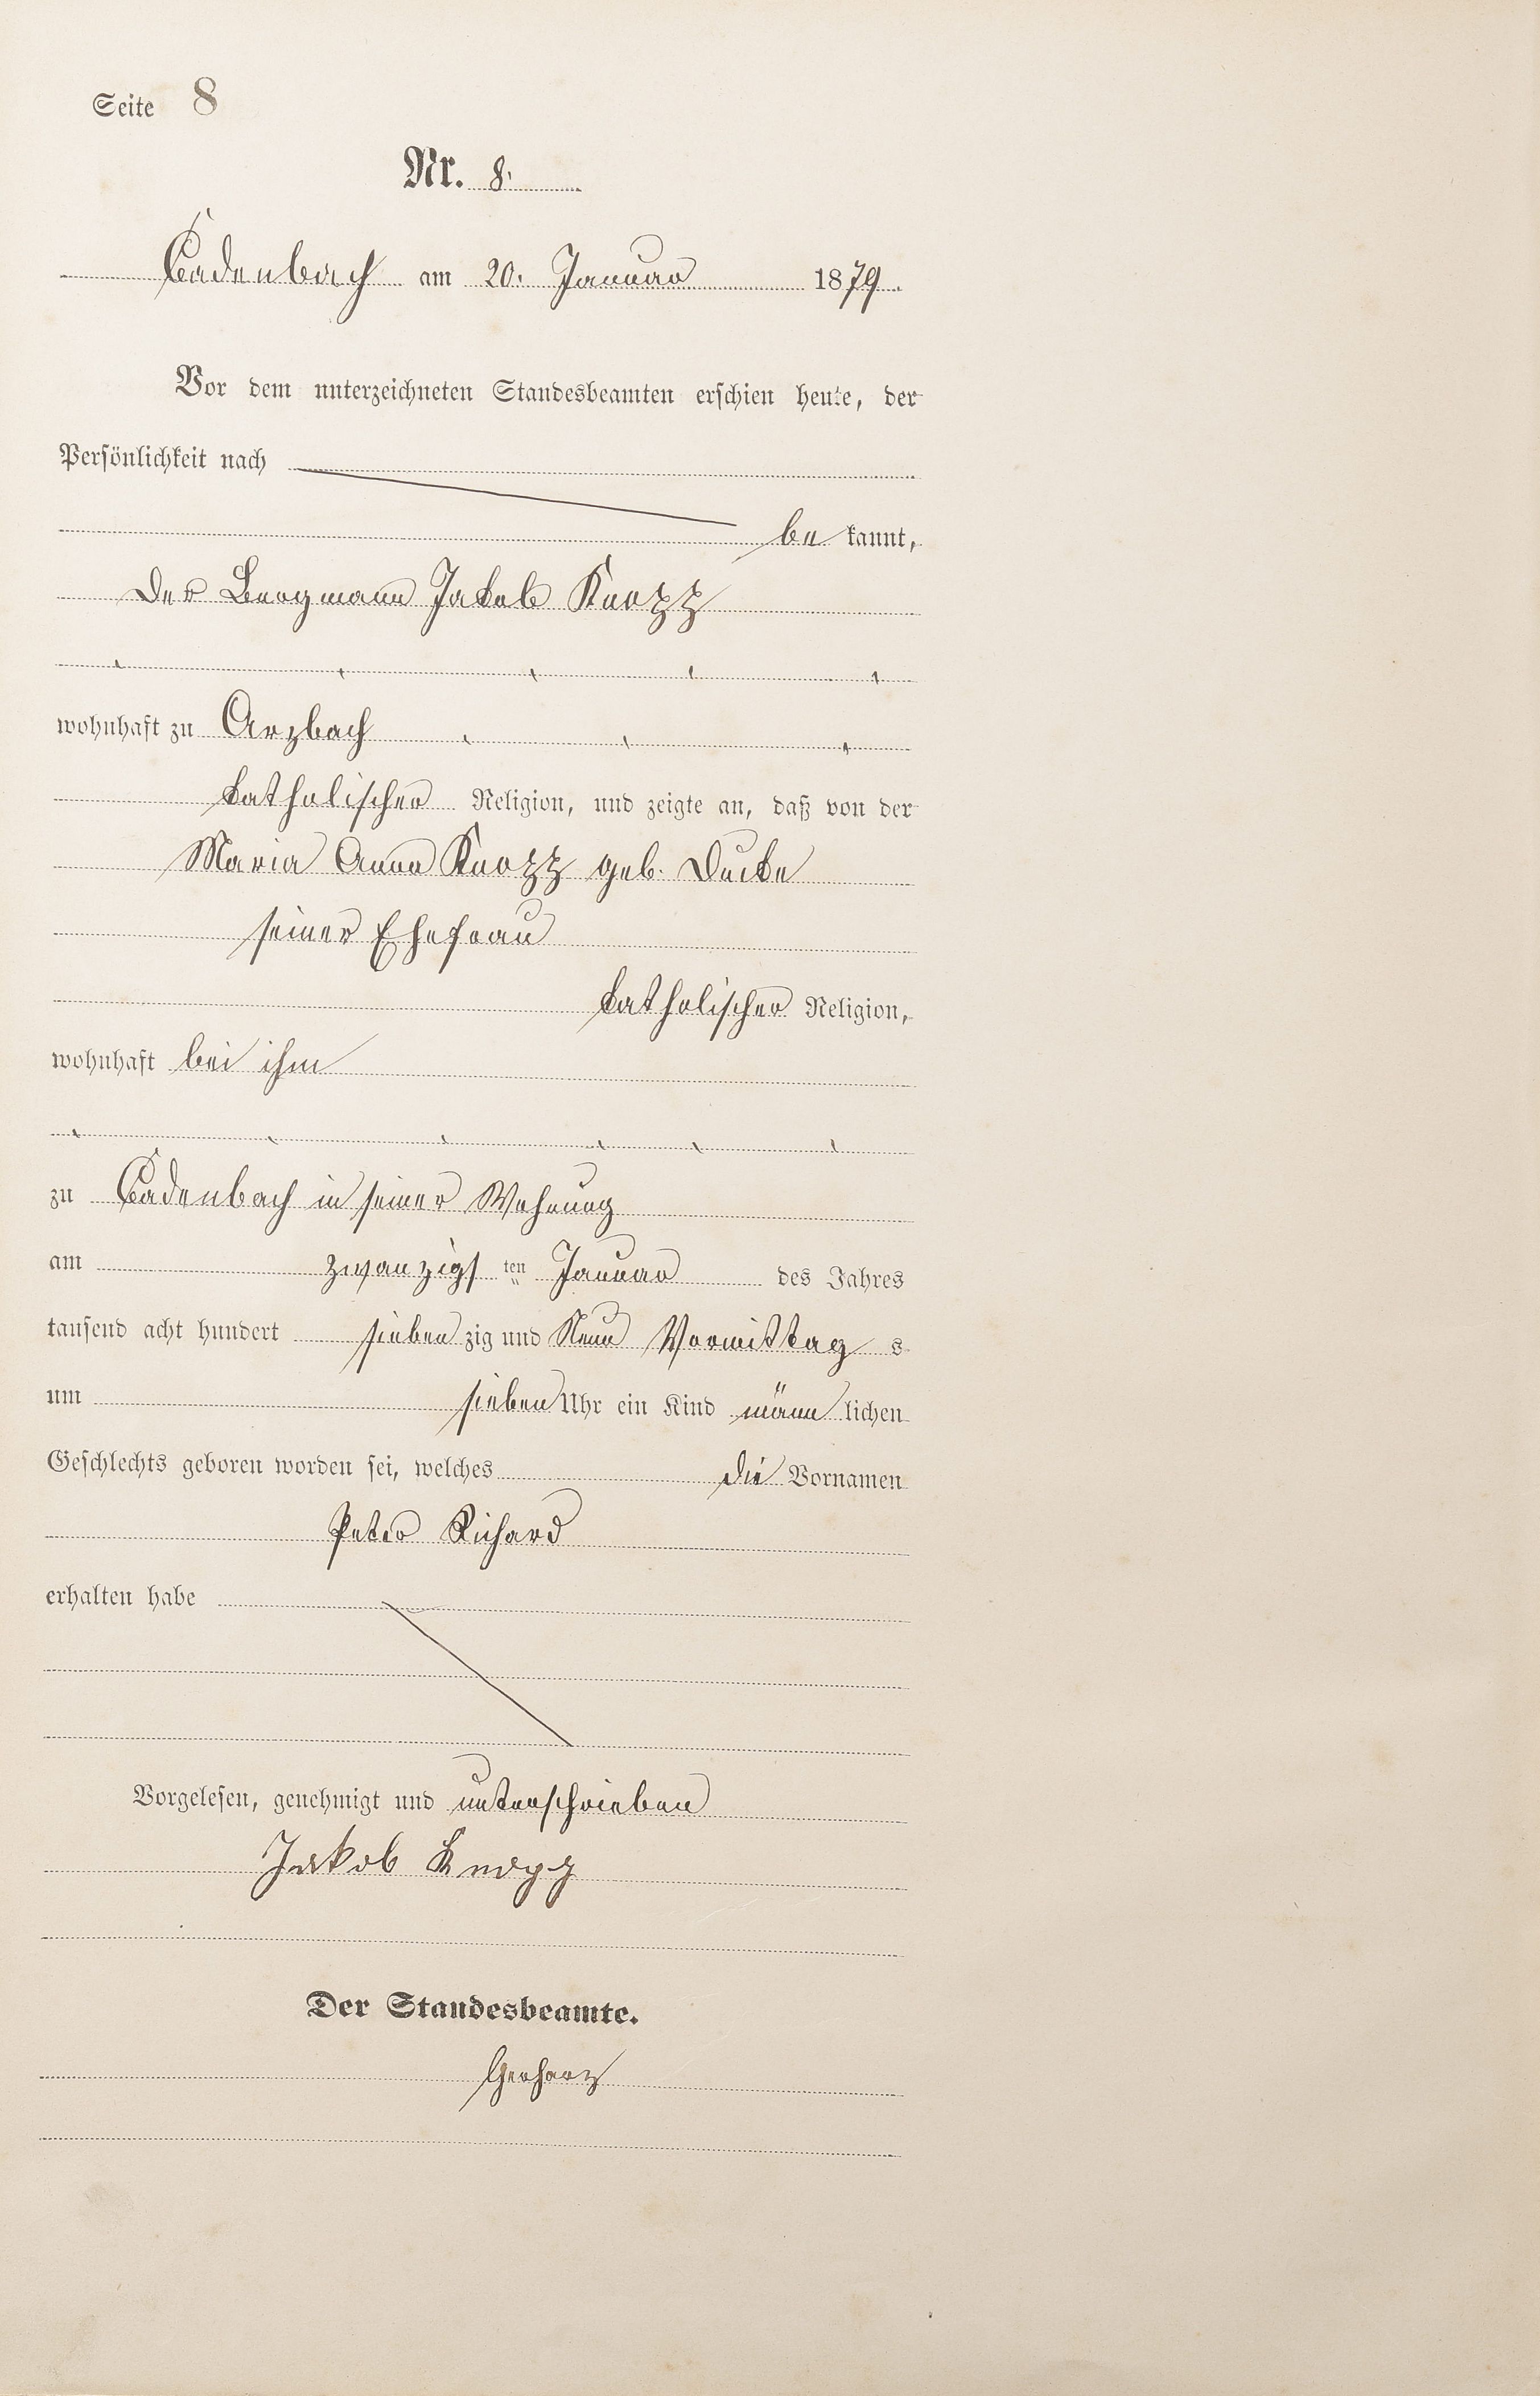 Seite 8
Nr. 8.
Cadenbach am 20. Januar 1879.
Vor dem unterzeichneten Standesbeamten erschien heute, der
Persönlichkeit nach
be kannt,
Der Bergmann Jakob Knopp
wohnhaft zu Arzbach
katholischer Religion, und zeigte an, daß von der
Maria Anna Knopp geb. Ducke
seiner Ehefrau
katholischer Religion,
wohnhaft bei ihm
zu Cadenbach in seiner Wohnung
am zwanzigs ten Januar des Jahres
tausend acht hundert sieben zig und Neun Vormittag s
um sieben Uhr ein Kind männ lichen
Geschlechts geboren worden sei, welches die Vornamen
Peter Richard
erhalten habe
Vorgelesen, genehmigt und unterschrieben
Jakob Knopp
Der Standesbeamte.
Gerharz